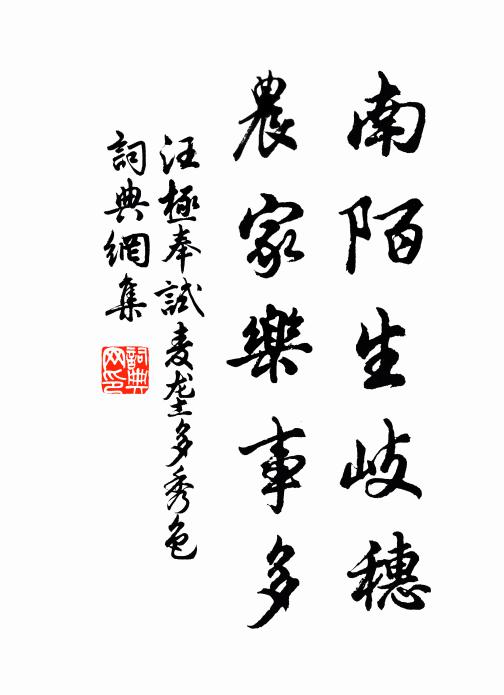 南陌生岐穗
農家樂事多
汪極奉試麦垄多秀色
詞典網集
詞典网印